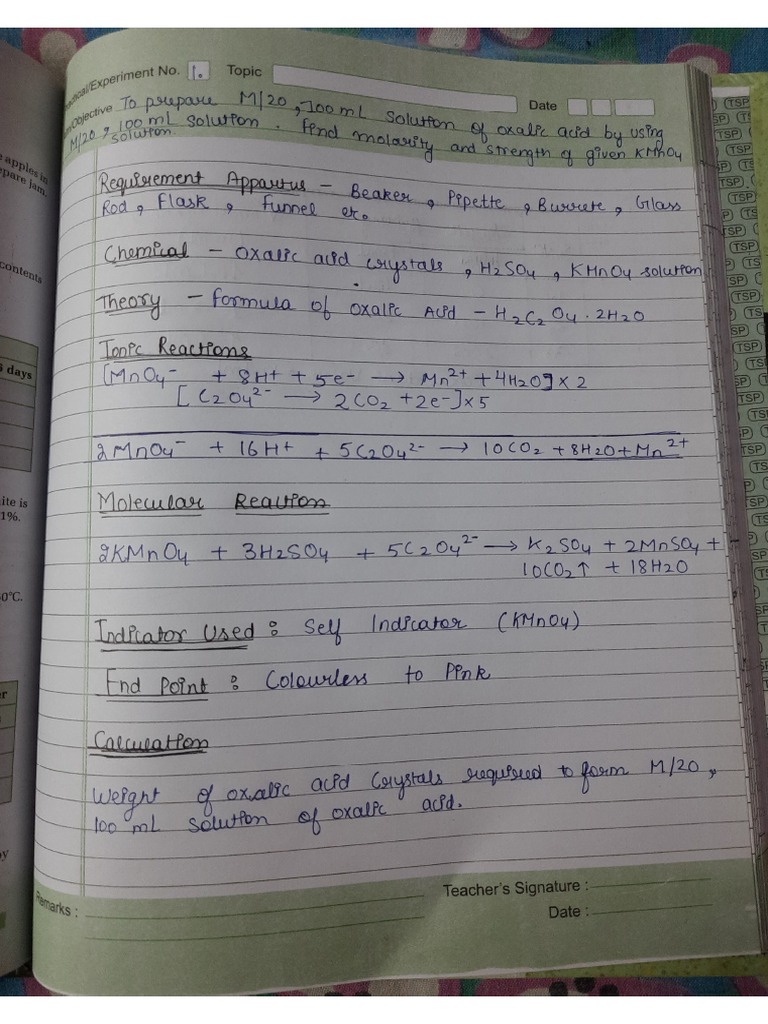 Practical/Experiment No. 1. Topic
Date
Objective To prepare M/20, 100 mL solution of oxalic acid by using
M/20, 100 mL solution. Find molarity and strength of given KMnO4
solution.
Requirement Appartus - Beaker, Pipette, Burrete, Glass
Rod, Flask, Funnel etc.
Chemical - oxalic acid crystals, H2SO4, KMnO4 solution
Theory - Formula of oxalic Acid - H2C2O4.2H2O
Ionic Reactions
[MnO4- + 8H+ + 5e- → Mn2+ + 4H2O] x 2
[C2O42- → 2CO2 + 2e-] x 5
2MnO4- + 16H+ + 5C2O42- → 10CO2 + 8H2O + Mn2+
Molecular Reaction
2KMnO4 + 3H2SO4 + 5C2O42- → K2SO4 + 2MnSO4 +
10CO2↑ + 18H2O
Indicator Used : Self Indicator (KMnO4)
End Point : Colourless to Pink
Calculation
Weight of oxalic acid crystals required to form M/20,
100 mL solution of oxalic acid.
Remarks :
Teacher's Signature :
Date :
apples in
pare jam.
contents
days
ite is
1%.
0°C.
er
y
TSP